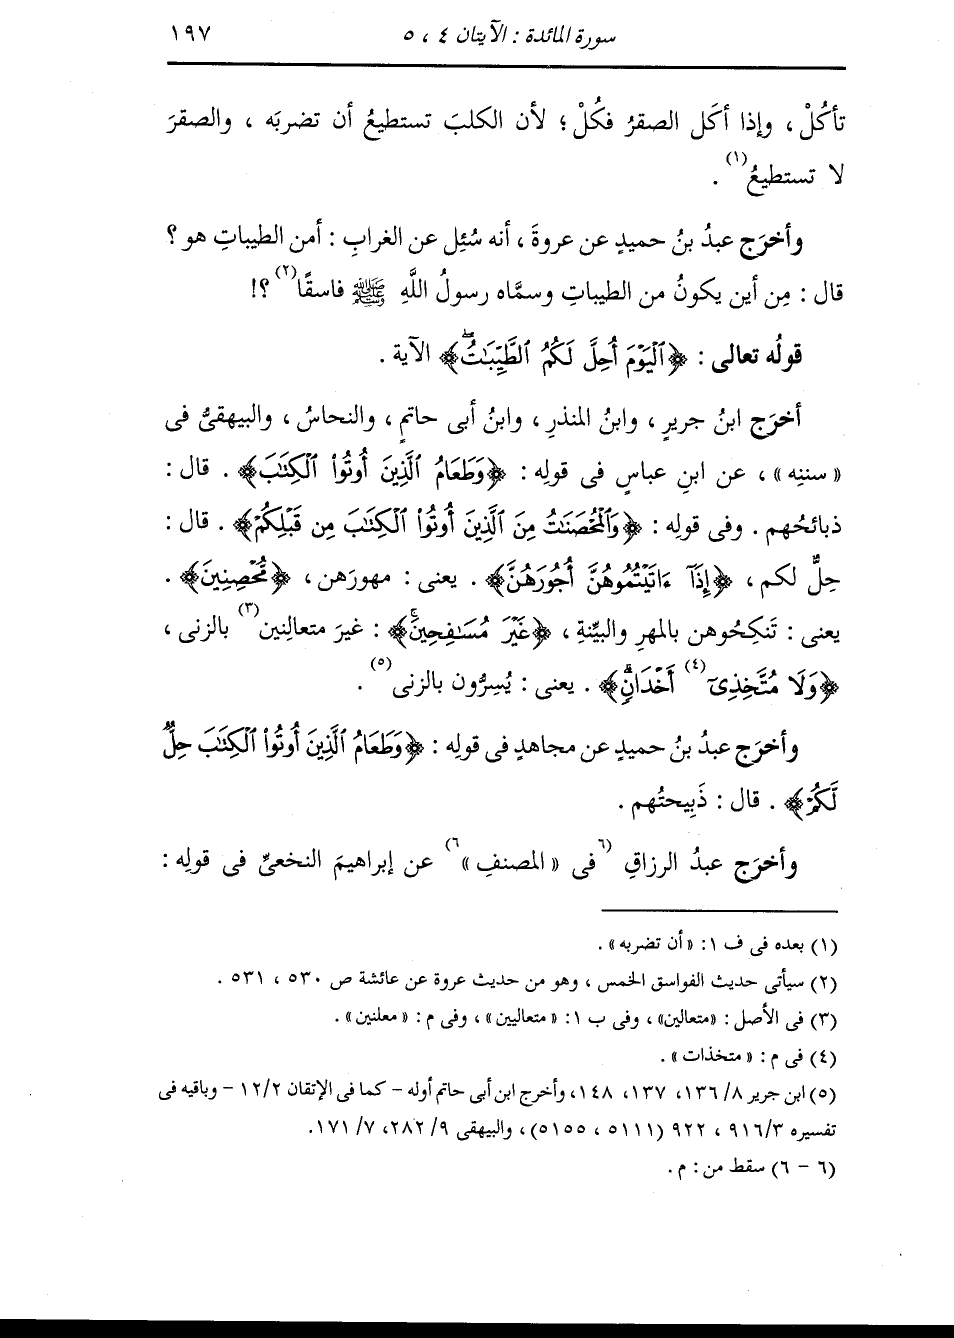 سورة المائدة : الآيتان ٤ ، ٥ ١٩٧
تأكُلْ ، وإذا أكَل الصقرُ فكُلْ ؛ لأن الكلبَ تستطيعُ أن تضربَه ، والصقرَ
لا تستطيعُ(١) .
وأخرَج عبدُ بنُ حميدٍ عن عروةَ ، أنه سُئِل عن الغرابِ : أمن الطيباتِ هو ؟
قال : مِن أين يكونُ من الطيباتِ وسمَّاه رسولُ اللَّهِ ﷺ فاسقًا(٢) ؟!
قولُه تعالى : ﴿ٱلْيَوْمَ أُحِلَّ لَكُمُ ٱلطَّيِّبَـٰتُۖ﴾ الآية .
أخرَج ابنُ جريرٍ ، وابنُ المنذرِ ، وابنُ أبى حاتمٍ ، والنحاسُ ، والبيهقىُّ فى
« سننِه » ، عن ابنِ عباسٍ فى قولِه : ﴿وَطَعَامُ ٱلَّذِينَ أُوتُوا۟ ٱلْكِتَـٰبَ﴾ . قال :
ذبائحُهم . وفى قولِه : ﴿وَٱلْمُحْصَنَـٰتُ مِنَ ٱلَّذِينَ أُوتُوا۟ ٱلْكِتَـٰبَ مِن قَبْلِكُمْ﴾ . قال :
حِلٌّ لكم ، ﴿إِذَآ ءَاتَيْتُمُوهُنَّ أُجُورَهُنَّ﴾ . يعنى : مهورَهن ، ﴿مُحْصِنِينَ﴾ .
يعنى : تَنكِحُوهن بالمهرِ والبيِّنةِ ، ﴿غَيْرَ مُسَـٰفِحِينَ﴾ : غيرَ متعالِنين(٣) بالزنى ،
﴿وَلَا مُتَّخِذِىٓ(٤) أَخْدَانٍۗ﴾ . يعنى : يُسِرُّون بالزنى(٥) .
وأخرَج عبدُ بنُ حميدٍ عن مجاهدٍ فى قولِه : ﴿وَطَعَامُ ٱلَّذِينَ أُوتُوا۟ ٱلْكِتَـٰبَ حِلٌّ
لَّكُمْ﴾ . قال : ذَبِيحتُهم .
وأخرَج عبدُ الرزاقِ (٦ فى « المصنفِ »٦) عن إبراهيمَ النخعىِّ فى قولِه :
(١) بعده فى ف ١ : « أن تضربه » .
(٢) سيأتى حديث الفواسق الخمس ، وهو من حديث عروة عن عائشة ص ٥٣٠ ، ٥٣١ .
(٣) فى الأصل : «متعالين» ، وفى ب ١ : « متعاليين » ، وفى م : « معلنين» .
(٤) فى م : « متخذات » .
(٥) ابن جرير ٨/ ١٣٦، ١٣٧، ١٤٨، وأخرج ابن أبي حاتم أوله – كما فى الإتقان ١٢/٢ – وباقيه فى
تفسيره ٩١٦/٣ ، ٩٢٢ (٥١١١ ، ٥١٥٥) ، والبيهقى ٩/ ٢٨٢، ٧/ ١٧١.
(٦ – ٦) سقط من : م .